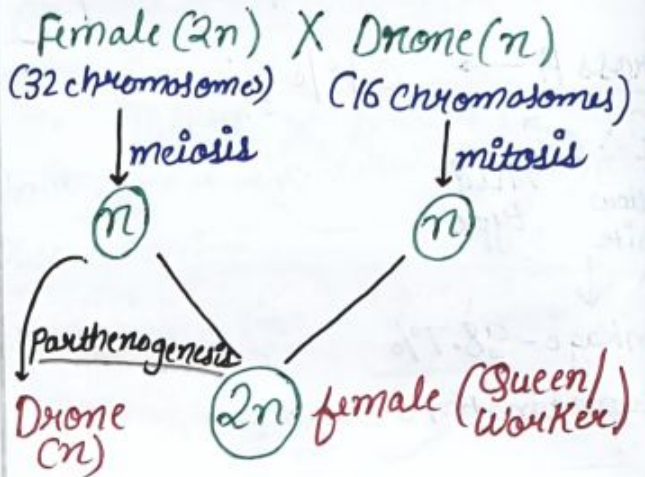 Female (2n) X Drone (n)
(32 chromosomes) (16 chromosomes)
meiosis mitosis
n n
Parthenogenesis
Drone
(n)
2n female (Queen/
Worker)